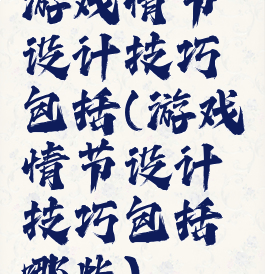 游戏情节
设计技巧
包括(游戏
情节设计
技巧包括
哪些)